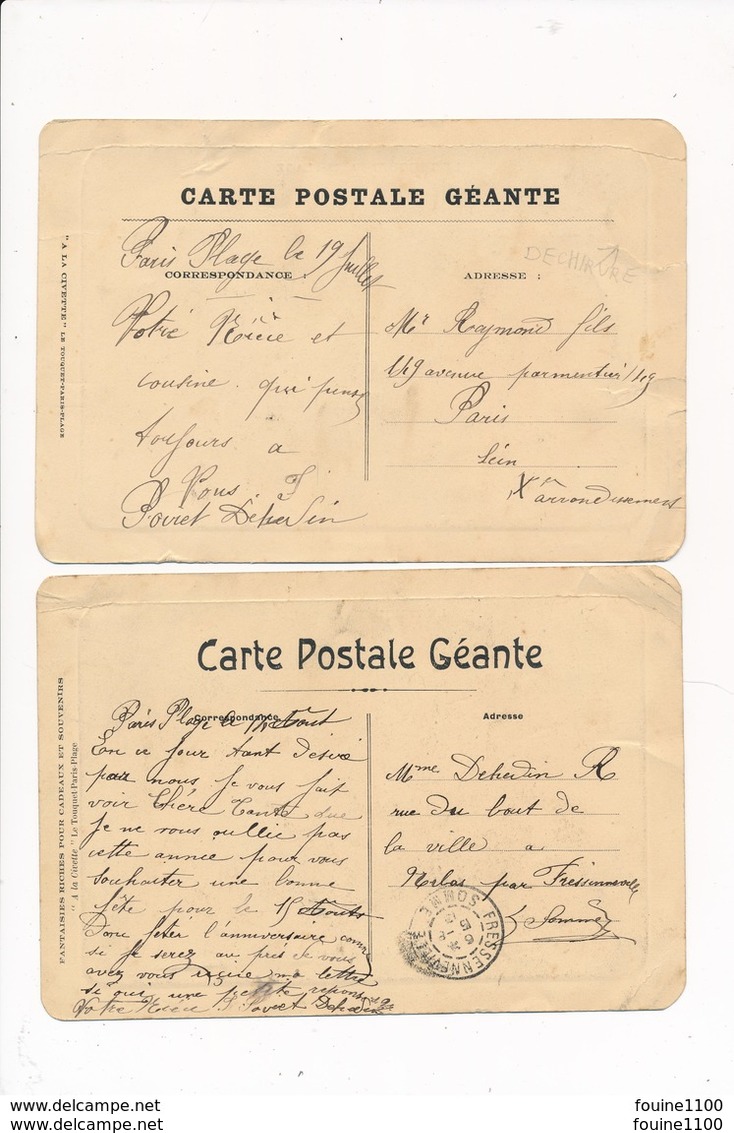 CARTE POSTALE GÉANTE
"A LA CIVETTE" LE TOUQUET-PARIS-PLAGE
Paris Plage le 19 Juillet
CORRESPONDANCE
Votre Nièce et
cousine qui pense
toujours a
Vous J
Poiret Dehedin
DECHIRURE
ADRESSE :
Mr Raymond fils
149 avenue parmentier 149
Paris
Sein
Xe arrondissement
Carte Postale Géante
FANTAISIES RICHES POUR CADEAUX ET SOUVENIRS
"A la Civette" Le Touquet-Paris-Plage
Correspondance
Paris Plage le Aout
En ce jour tant désiré
pour nous je vous fait
voir Chére Tante que
je ne vous oullie pas
cette année pour vous
souhaiter une bonne
fête pour le 15 Aouts
Donc fêter l'anniversaire comme
si je serez au près de vous
avez vous reçue ma lettre
si oui une petite reponse
Votre Nièce J Poiret Dehedin
Adresse
Mme Dehedin R
rue Du bout de
la ville a
par Fressenneville
Somme
FRESSENNEVILLE
SOMME
fouine1100
fouine1100
fouine1100
fouine1100